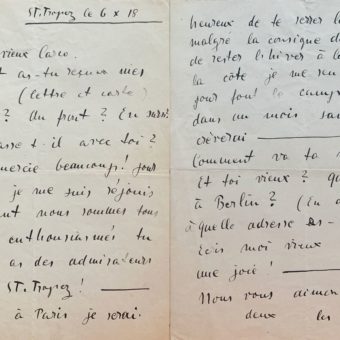 ST. Tropez le 6 x 18
vieux Carco.
as-tu reçu mes
(lettre et carte)
? du front? En
t-il avec toi?
beaucoup! pour
je me suis réjouis
nous sommes tous
enthousiasmés tu
as des admirateurs
ST. Tropez!
à Paris je serai
heureux de te serrer
malgré la consigne
de rester l'hiver à
la côte je me
jour font la
dans un mois
crèverai
Comment va ta
Et toi vieux?
à Berlin?
à quelle adresse
Ecis moi vieux
une joie!
Nous vous
deux les